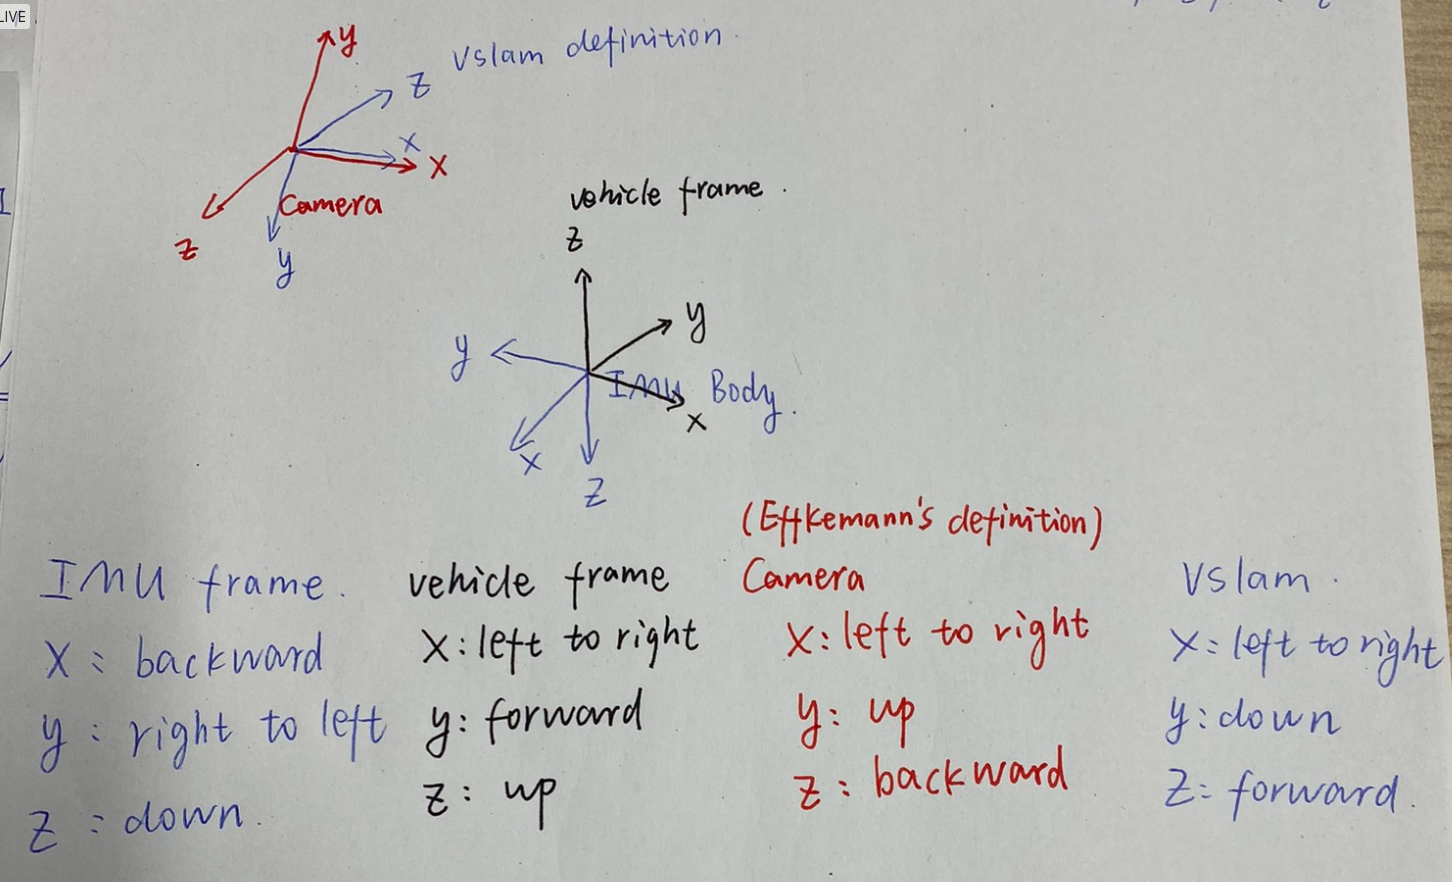 LIVE
y
Vslam definition
z
x
X
Camera
z
y
vehicle frame.
z
y
y
IMU Body.
x
x
z
(Effkemann's definition)
IMU frame.
X: backward
y: right to left
z: down.
vehicle frame
X: left to right
y: forward
z: up
Camera
X: left to right
y: up
z: backward
Vslam.
X: left to right
y: down
Z: forward.